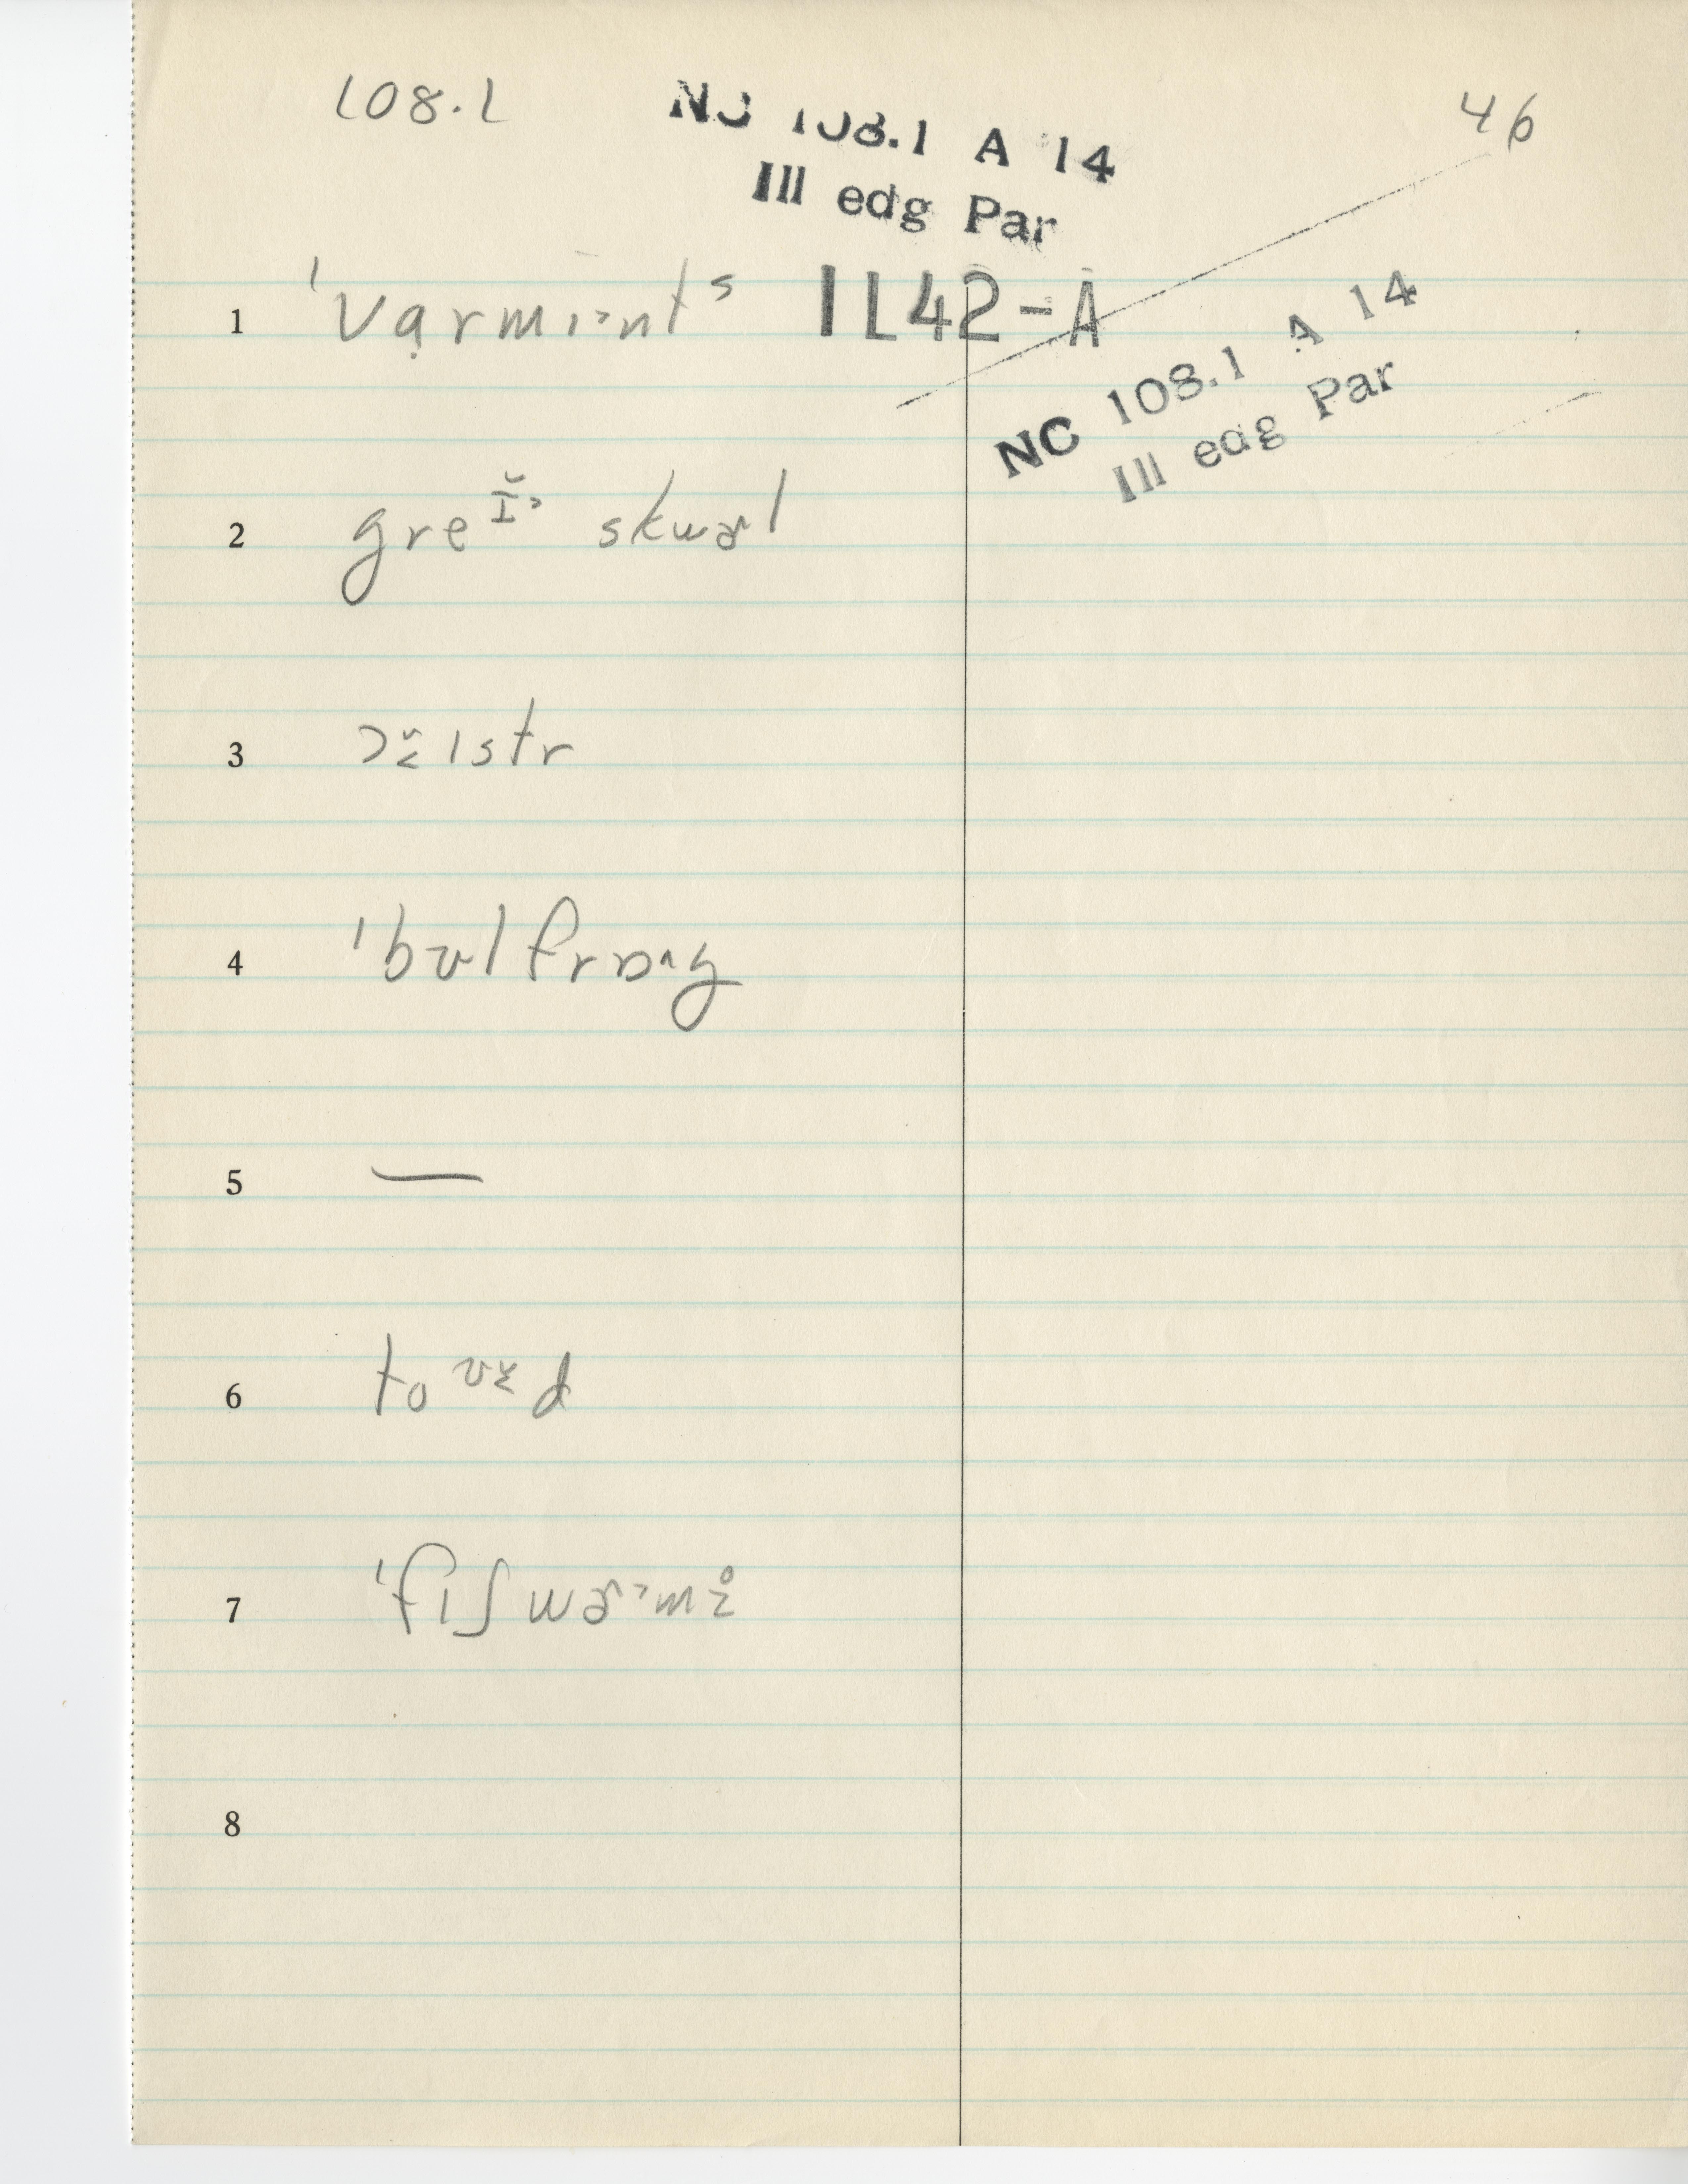 108.1 NC 108.1 A 14 46
Ill edg Par
1 ˈvɑ̣rmɪ˃nt ˢ 1L42-A
NC 108.1 A 14
Ill edg Par
2 gre ɪ̆˃ skwɚl
3 ɔɪ̆ ɪstr
4 ˈbʊl frɒ^g
5 —
6 to ʊɪ̆ d
7 ˈfɪʃ wɚ˃mɪ̊
8